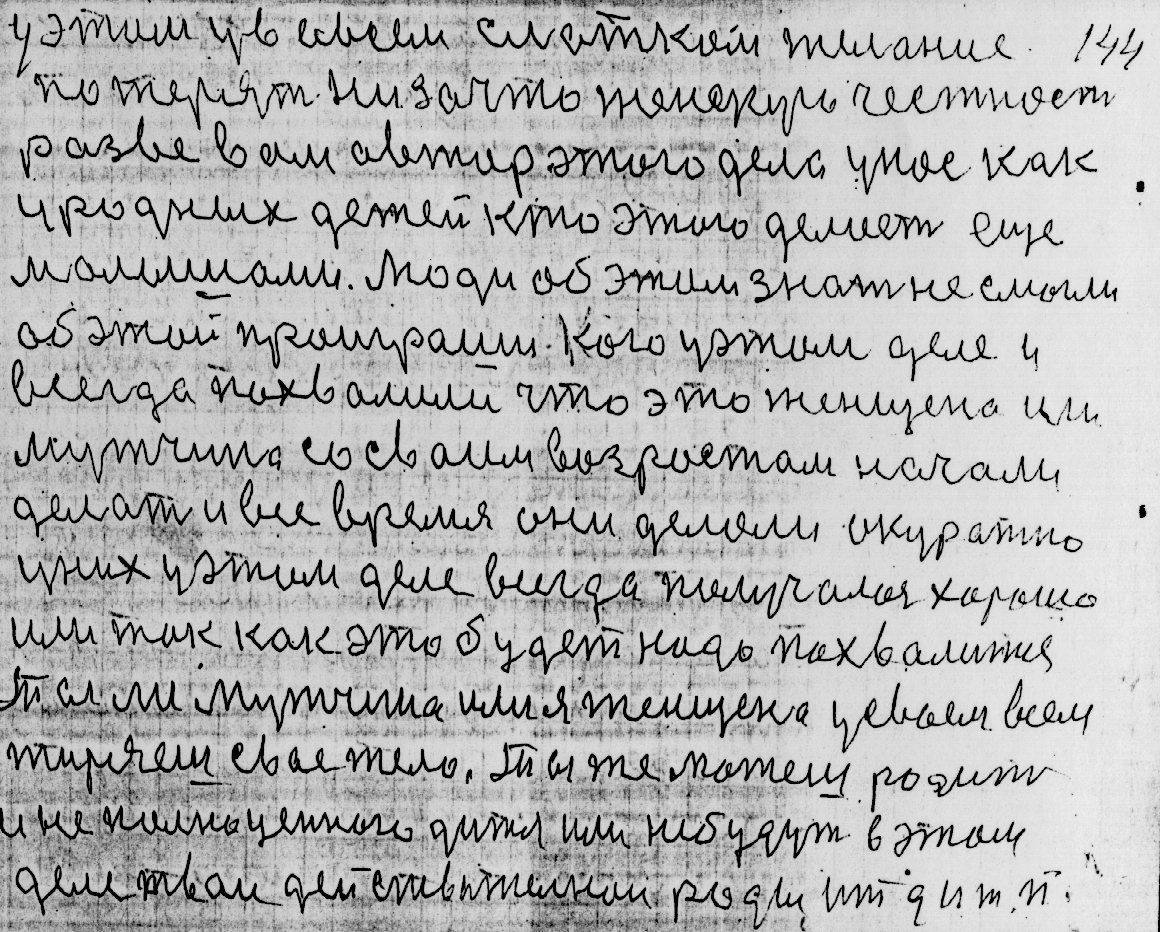 у этом ув своем слатком желание 144
потерят низачто женскую честност
разве вам автор этого дела унас как
у родних детей кто этого делает еще
малышами. Люди об этим знат не смогли
об этой програми. Кого у этом деле и
всегда похвалили что это женщена или
мутчина со сваим возростам начали
делат и все время они делали окуратно
уних у этим деле всегда получалоя хорошо
или так как это будет надо похвалитя
Тыли мутчина илия женщена у своем всем
тиряеш свае тело. Ты же можеш родит
и не полноценного дитя или небудут в этом
деле тваи действителнои роди, ит д и т. п.